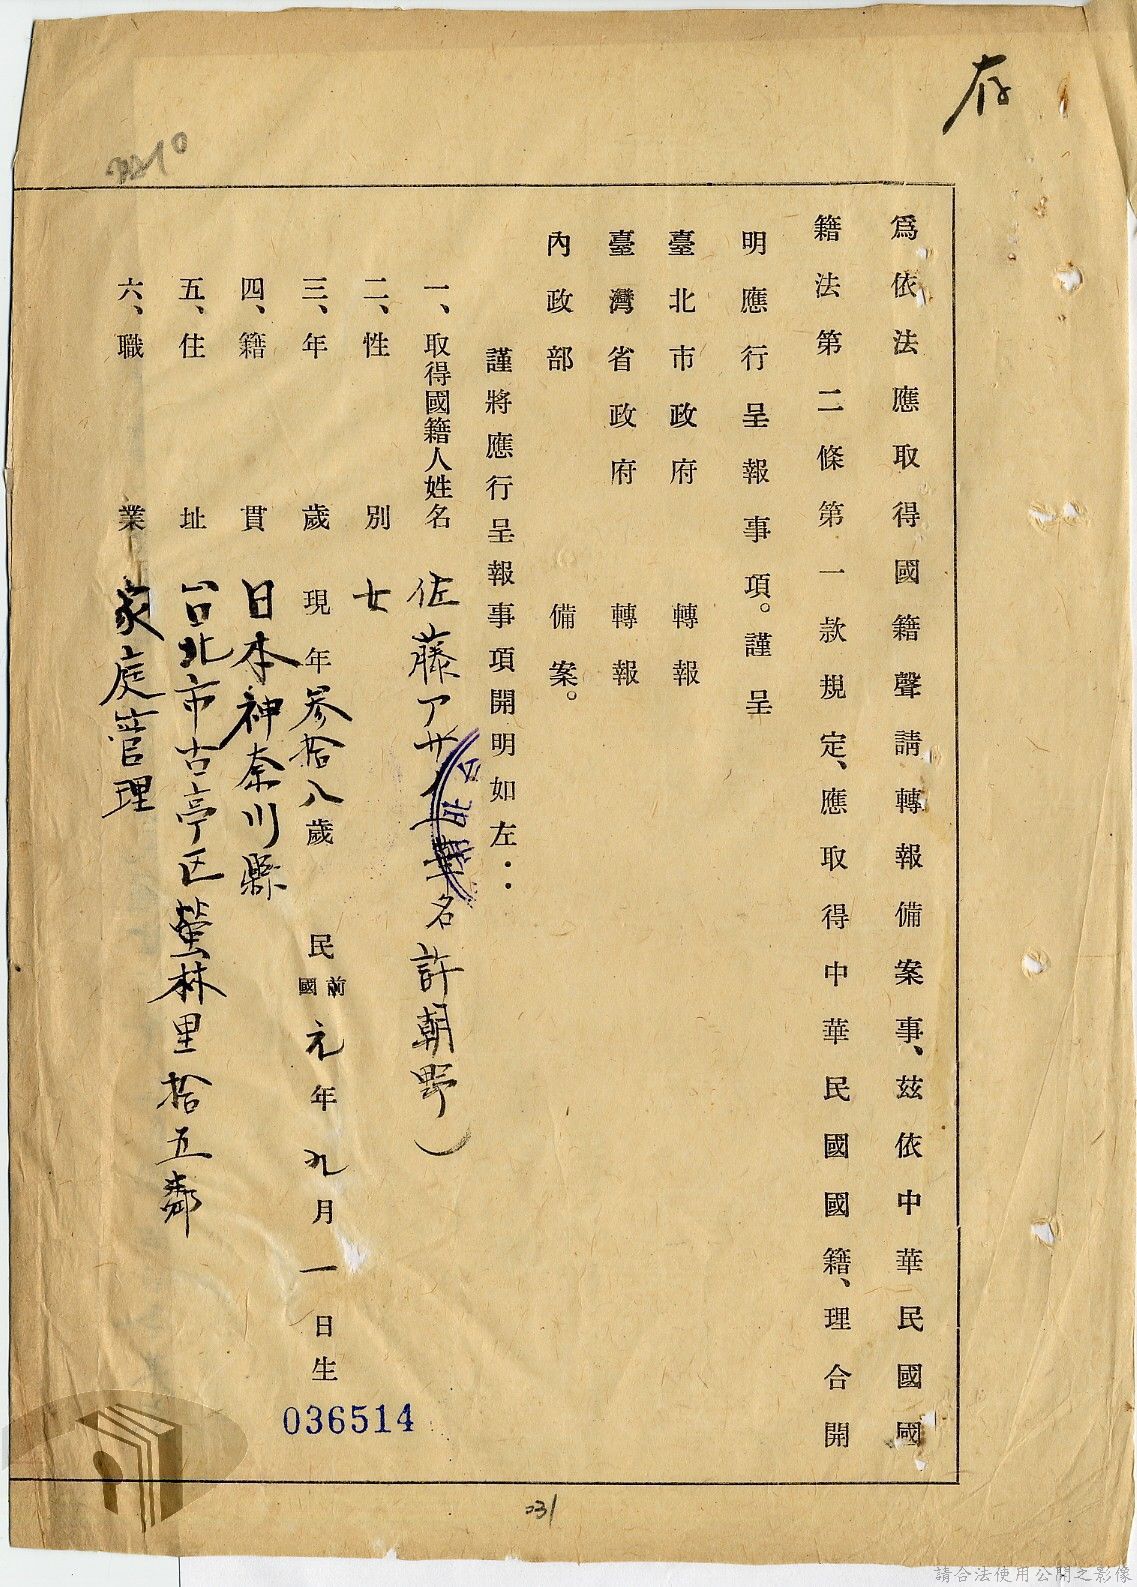 存
為依法應取得國籍聲請轉報備案事、茲依中華民國國
籍法第二條第一款規定、應取得中華民國國籍、理合開
明應行呈報事項。謹呈
臺北市政府 轉報
臺灣省政府 轉報
內政部 備案。
謹將應行呈報事項開明如左：
一、取得國籍人姓名 佐藤アサ 華名許朝野）
二、性別 女
三、年歲 現年參拾八歲 民國前元年九月一日生
四、籍貫 日本神奈川縣
五、住址 台北市古亭区螢林里拾五鄰
六、職業 家庭管理
036514
031
請合法使用公開之影像